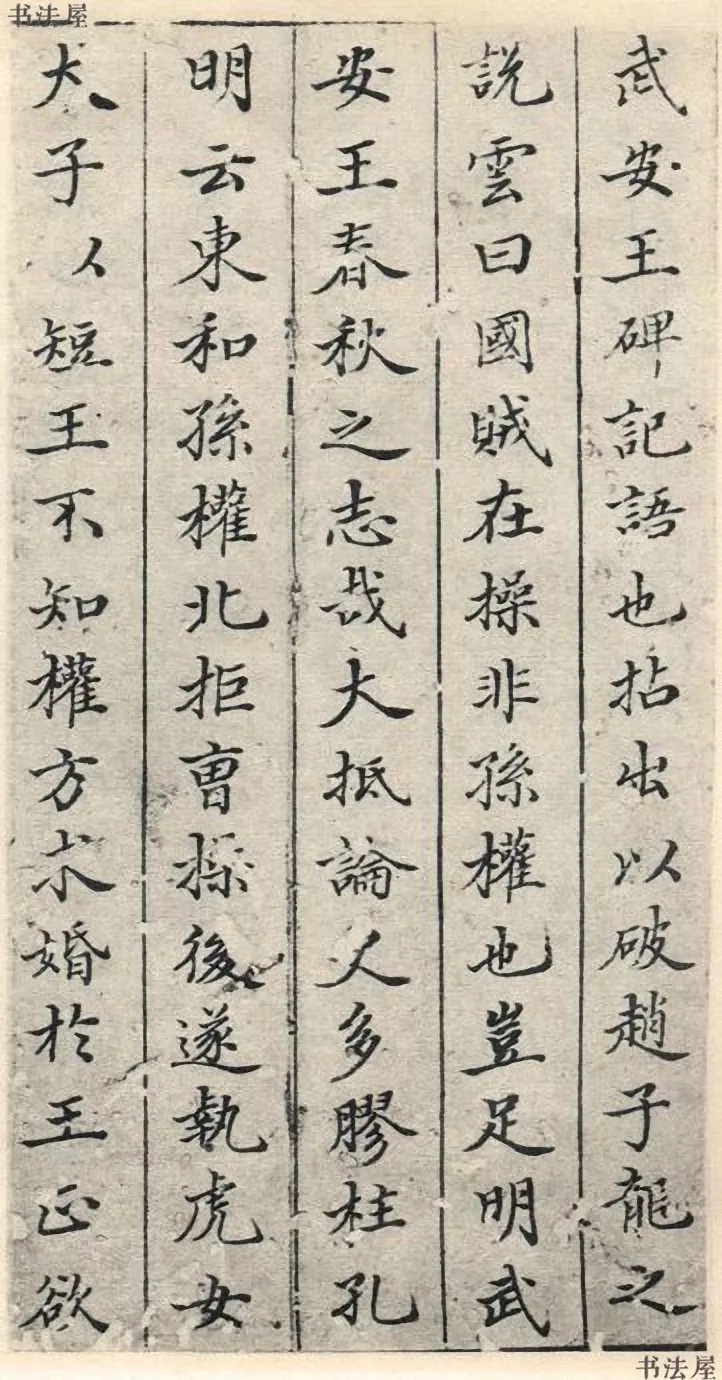 书法屋
武安王碑記語也拈出以破趙子龍之
説雲曰國賊在操非孫權也豈足明武
安王春秋之志哉大抵論人多膠柱孔
明云東和孫權北拒曹操後遂執虎女
犬子以短王不知權方求婚於王正欲
书法屋